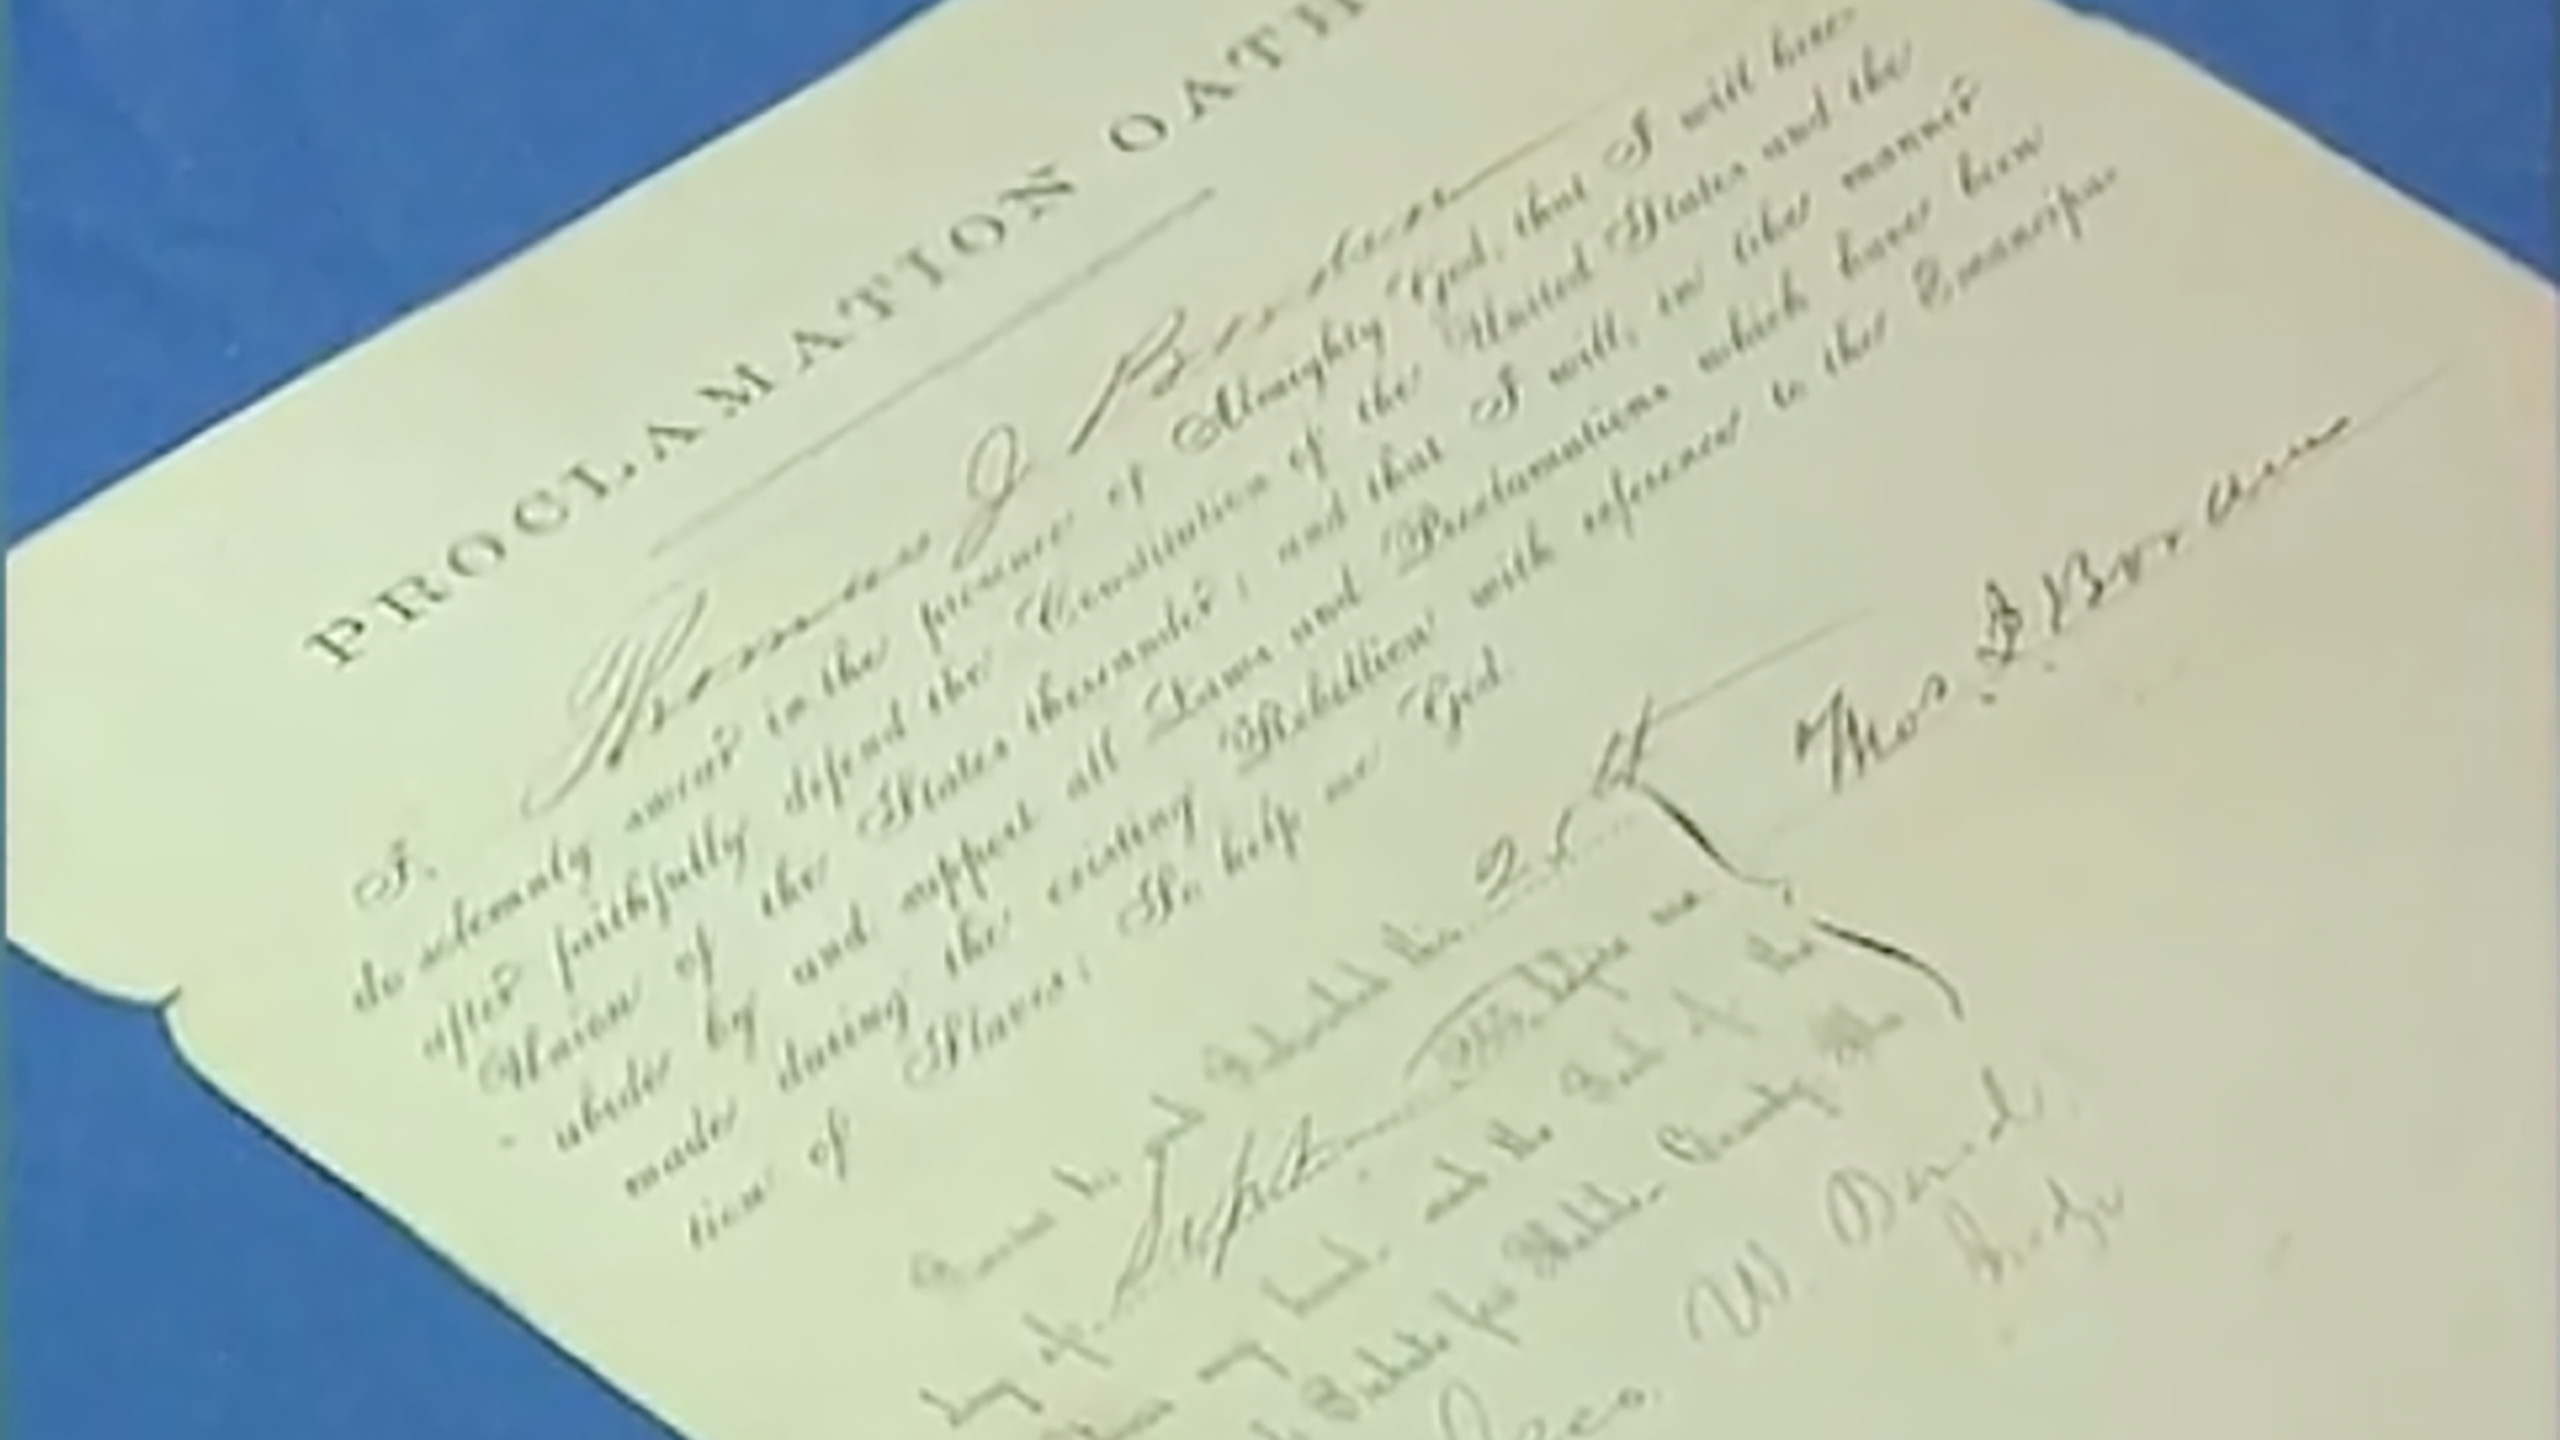 PROCLAMATION OATH
I, Thomas J.
do solemnly swear in the presence of Almighty God, that I will here-
after faithfully defend the Constitution of the United States and the
Union of the States thereunder; and that I will, in like manner
abide by and support all Laws and Proclamations which have been
made during the existing Rebellion with reference to the Emancipa-
tion of Slaves; So help me God.
Thos J
Sworn to and Subscribed this 25th
day of Sept before me
my hand and the Seal of the
Probate for Mobile County the
Geo. W. Bond
Judge